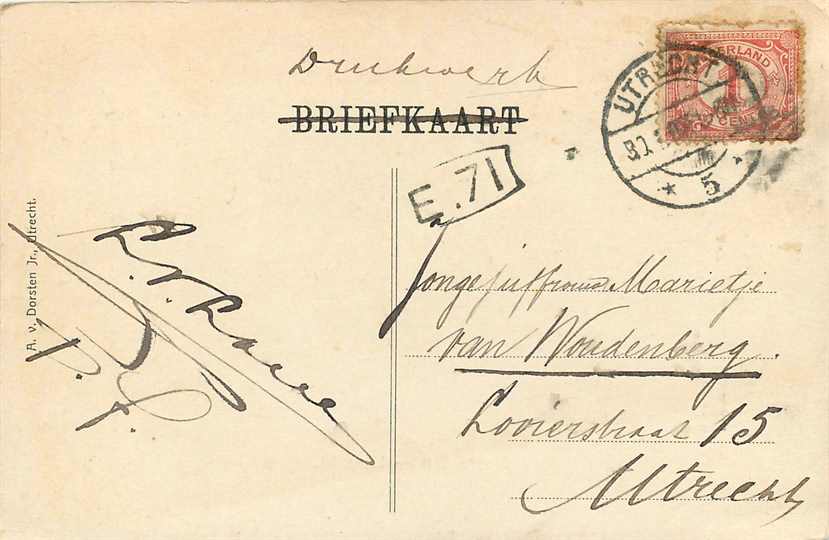 Drukwerk
BRIEFKAART
NEDERLAND
1
CENT
UTRECHT
5
E.71
Jongejuffrouw Marietje
van Woudenberg.
Looierstraat 15
Utrecht
A. v. Dorsten Jr., Utrecht.
p. f.